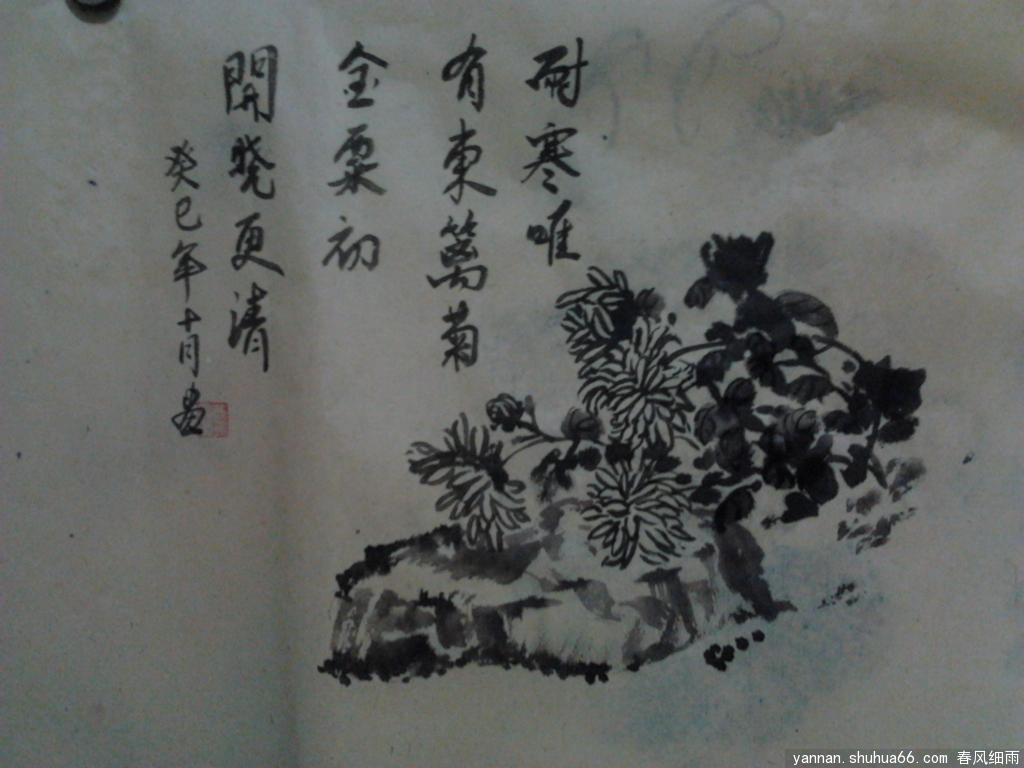 耐寒唯
有東籬菊
金粟初
開曉更清
癸巳年十月畫
yannan.shuhua66.com 春风细雨